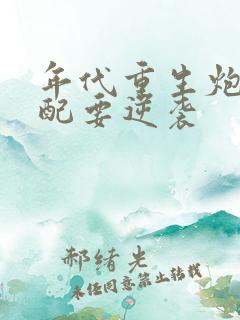 年代重生炮
配要逆袭
郝绪光
未经同意禁止转载